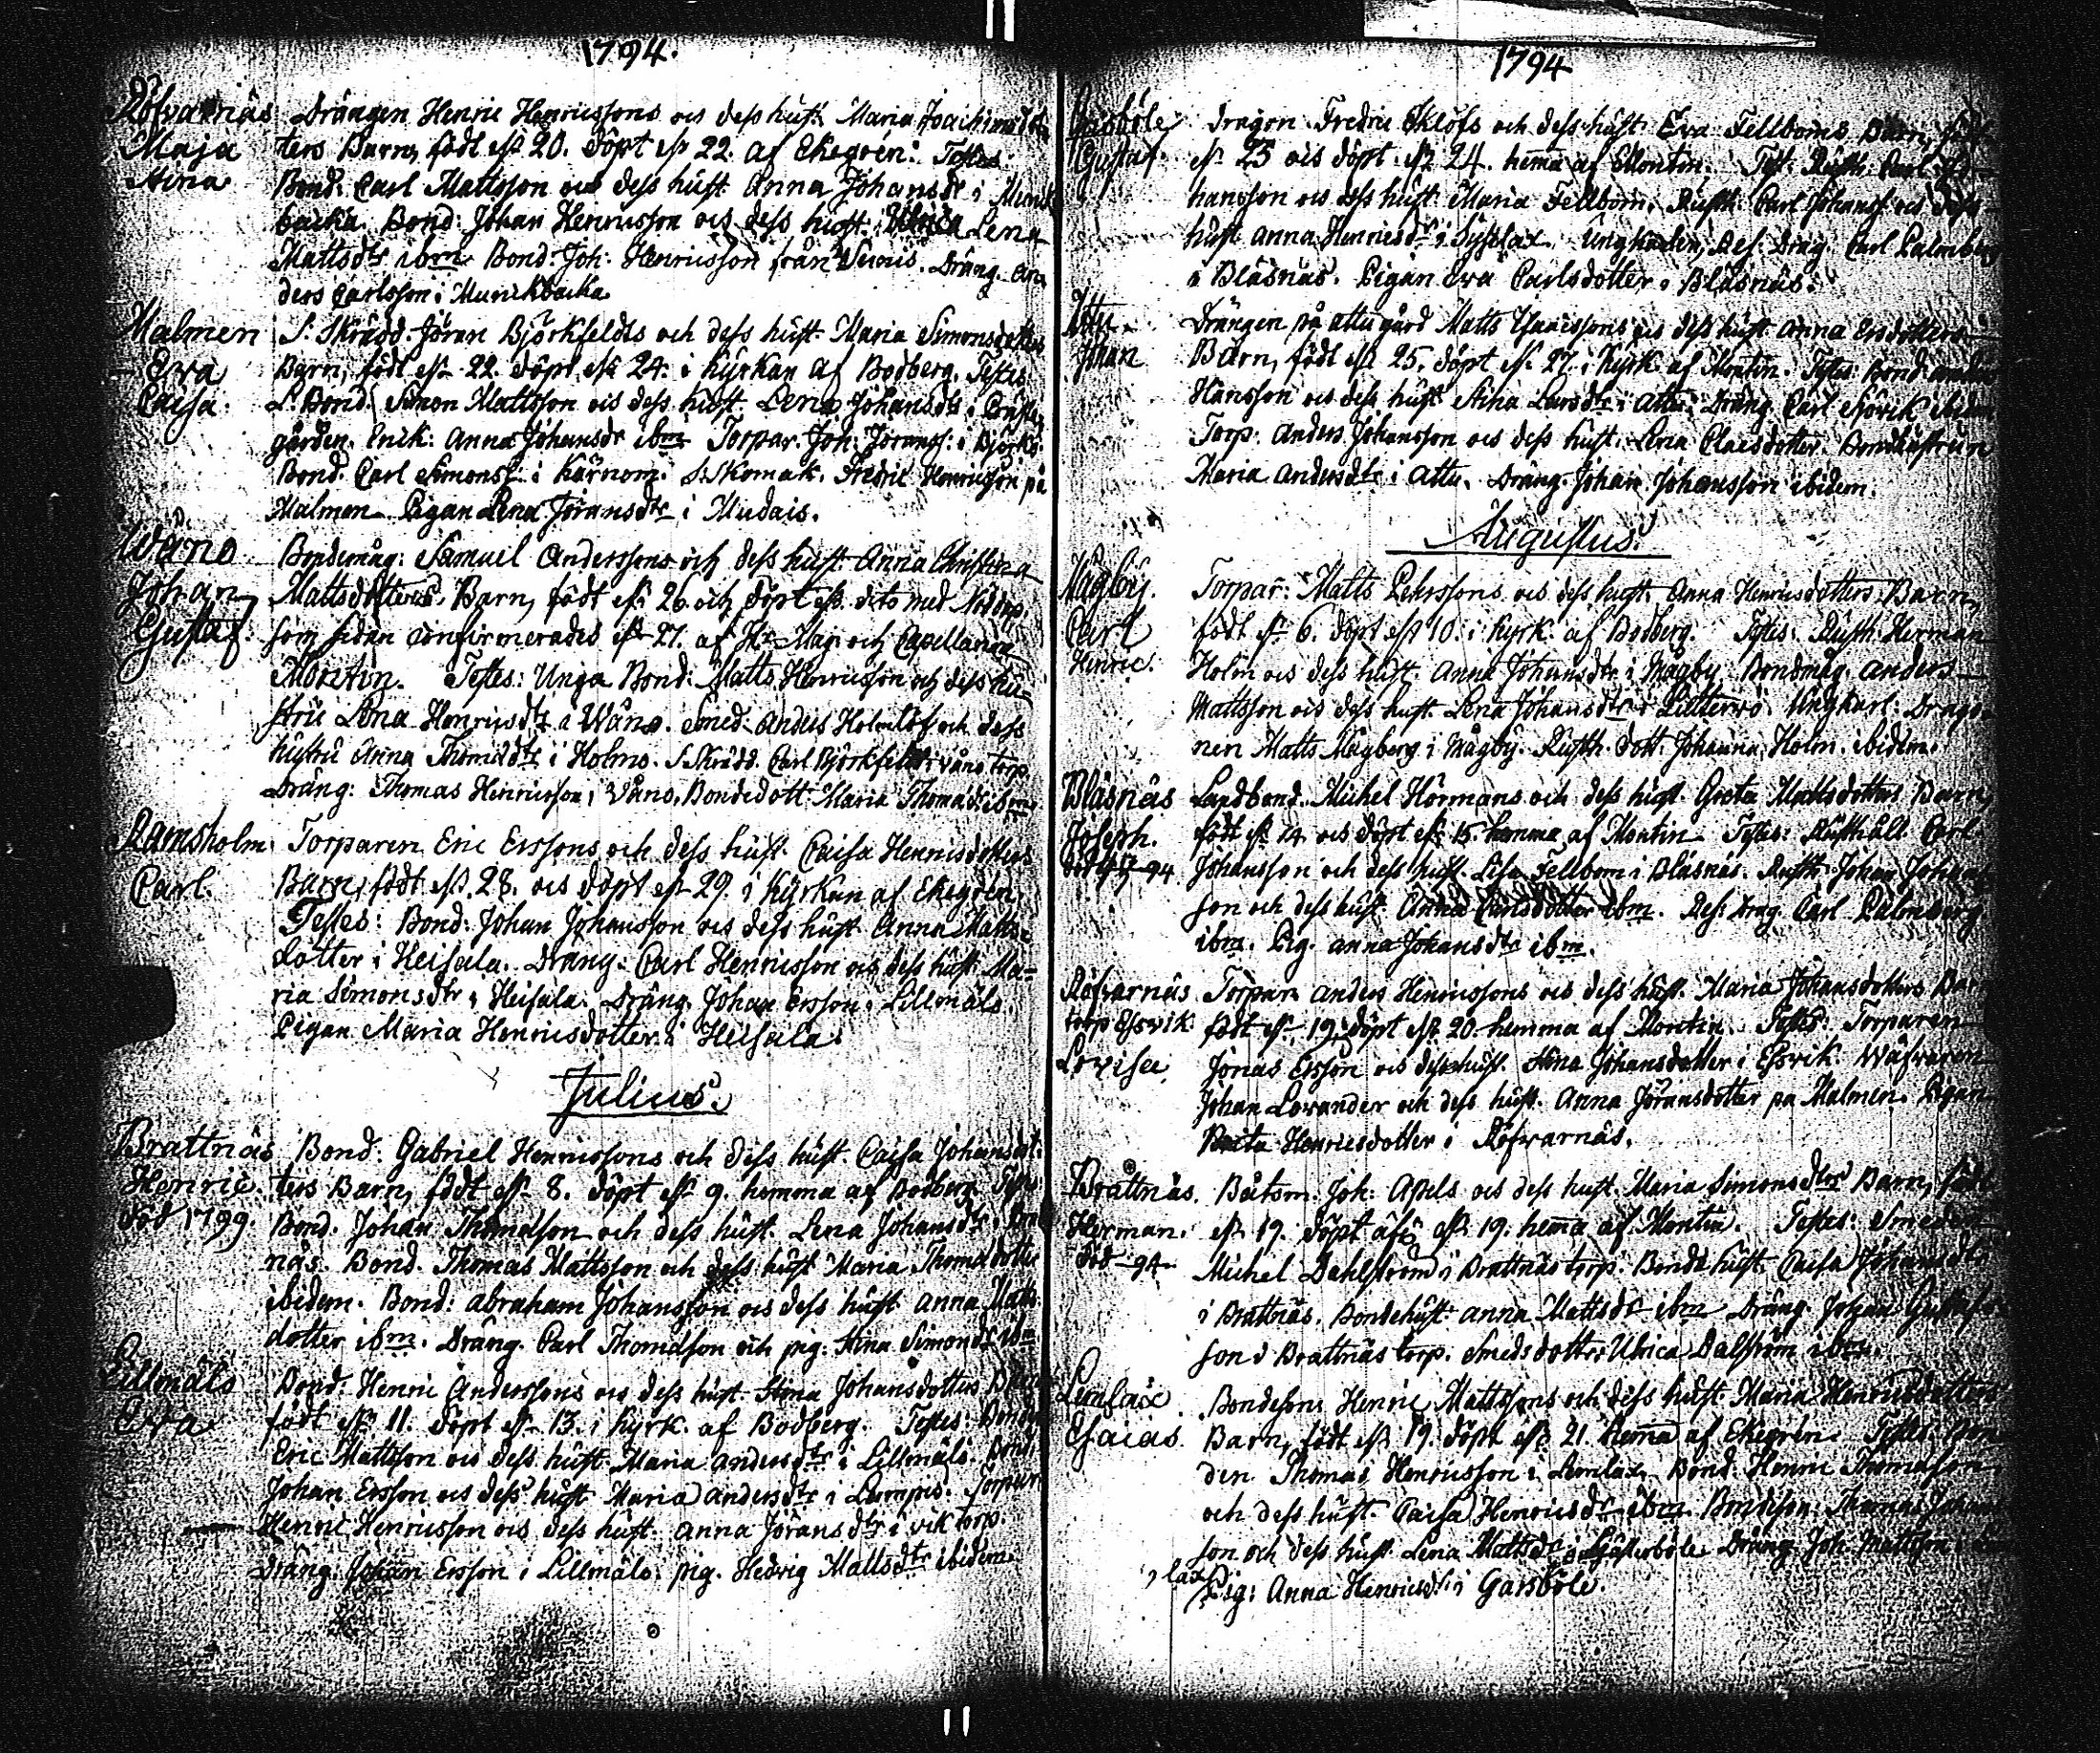 1794.
Röfvarnäs Drängen Henric Henricssons ocs dess hust. Maria Joachimsdot
Maja ters Barn, födt eft 20. döpt eft 22. af Ekegrén. Testes:
Stina Bond. Carl Mattsson ocs dess hust Anna Johansdr i Munk
backa. Bond: Johan Henricsson ocs dess hust. Lena
Mattsdtr ibm. Bond: Joh: Henricsson från . Dräng. An
ders Carlsson i Munckbacka
Malmen S: Skrädd. Jöran Björkfeldts och dess hust. Maria Simonsdotters
Eva Barn, födt eft 22. döpt eft 24. i Kyrkan af Bodberg. Testes
Caisa. L. Bond. Simon Mattsson ocs dess hust. Lena Johansdtr i
gården. Enk: Anna Johansdr ibm Torpar. Joh: Joranss: i
Bond. Carl Simonss: i Kärnom. S. Skomak. Fredric Henricsson på
Malmen. Pigan Lena Joransdtr i Mudais.
Våno Bondemåg: Samuel Anderssons och dess hust Anna Christina
Johan Mattsdotters Barn, födt eft 26 och döpt eft. dito med Nöddop,
Gustaf. som sedan confirmerades eft 27. af Hr Mag. och Capellanen
Montin. Testes: Unga Bond: Matts Henricsson och dess hu-
stru Lena Henricsdtr i Våno. Smed. Anders Holmlöf och dess
hustru Anna Thomasdtr i Holmo. S. Skrädd. Carl Björkfeldt i våno torp.
Dräng: Thomas Henricsson i Våno. Bondedott Maria Thomasdr ibm
Ramsholm Torparen Eric Erssons och dess hust. Caisa Henricsdotters
Carl. Barn, födt eft. 28. ocs döpt eft 29. i Kyrkan af Ekegrén,
Testes: Bond: Johan Johansson ocs dess hust Anna Matts-
dotter i Heisala. Dräng: Carl Henricsson ocs dess hust. Ma-
ria Simonsdtr i Heisala. Dräng. Johan Ersson i Lillmälö.
Pigan Maria Henricsdotter i Heisala.
Julius.
Brattnäs Bond: Gabriel Henricssons och dess hust. Caisa Johansdot-
Henric. ters Barn, födt eft 8. döpt eft 9. hemma af Bodberg. Testes
död 1799. Bond. Johan Thomasson och dess hust. Lena Johansdtr i
näs. Bond. Thomas Mattsson och dess hust Maria Thomasdotter
ibidem. Bond: Abraham Johansson ocs dess hust Anna Matts-
dotter ibm. Dräng. Carl Thomasson och pig: Stina Simonsdr ibm
Lillmälö Bond: Henric Anderssons ocs dess hust. Stina Johansdotters Barn
Eva födt eft 11. döpt eft 13. i Kyrk. af Bodberg. Testes: Bond.
Eric Mattsson ocs dess hust. Maria Andersdtr i Lillmälö. Bond.
Johan Ersson ocs dess hust Maria Andersdtr i Lempis. Torparen
Henric Henricsson ocs dess hust. Anna Joransdtr i vik torp.
Dräng. Johan Ersson i Lillmälö. pig. Hedvig Mattsdtr ibidem
1794
Dragon Fredric Eklöfs och dess hust Eva Fellboms Barn, födt
Gustaf. eft 23 ocs döpt eft 24. hemma af Montin. Test. Rusth. Carl Jo-
hansson ocs dess hust Maria Fellbom. Rusth. Carl Johanss ocs dess
hust Anna Henricsdtr i Sysslax. Ungkarlen, Res. Drag. Carl Palmberg
i Bläsnäs. Pigan Eva Carlsdotter i Bläsnäs.
Attu. Drängen på attu gård Matts Isaacssons ocs dess hust Anna Ersdotters
Johan Barn, födt eft 25. döpt eft 27. i Kyrk. af Montin. Testes: Bond.
Hansson ocs dess hust Stina Larsdtr i Attu. Dräng. Carl Sjövik ibidem
Torp. Anders Johansson ocs dess hust. Lena Claesdotter. Bondhustrun
Maria Andersdtr i Attu. Dräng. Johan Johansson ibidem.
Augustus.
Mågby. Torpar: Matts Pehrssons ocs dess hust. Anna Henricsdotters Barn,
Carl födt eft 6. döpt eft 10. i Kyrk. af Bodberg. Testes: Rusth. Herman
Henric. Holm ocs dess hust. Anna Johansdtr i Mågby. Bondmåg. Anders
Mattsson ocs dess hust. Lena Johansdtr i . Ungkarl: Drago-
nen Matts Mågberg i Mågby. Rusth. dott. Johanna Holm. ibidem.
Bläsnäs Landbond. Michel Hörmans och dess hust. Greta Mattsdotters Barn,
Joseph. födt eft 14 ocs döpt eft 15 hemma af Montin. Testes: Rusthåll. Carl
94 Johansson och dess hust. Lisa Fellbom i Bläsnäs. Rusth. Johan Johans-
son och dess hust. Anna Carlsdotter ibm. Res. Drag. Carl Palmberg
ibm. Pig. Anna Johansdtr ibm.
Röfvarnäs Torpar. Anders Henricssons ocs dess hust. Maria Johansdotters Barn
torp Efsvik. födt eft 19. döpt eft 20. hemma af Montin. Testes: Torparen
Lovisa Jonas Ersson ocs dess hust. Stina Johansdotter i Efsvik. Wäfvaren
Johan Lovander och dess hust. Anna Joransdotter på Malmen. Pigan
Henricsdotter i Röfvarnäs.
Brattnäs. Båtsm. Joh: Apels ocs dess hust. Maria Simonsdtrs Barn, födt
Herman. eft 19. döpt äfv. eft 19. hemma af Montin. Testes: Smeden
död 94 Michel Dahlström i Brattnäs torp. Bonde hust. Caisa Johansdtr
i Brattnäs. Bondehust Anna Mattsdr ibm Dräng. Johan Gustafs-
son i Brattnäs torp. Smedsdotter Ulrica Dalström ibm.
Lemlax Bondeson Henric Mattssons och dess hust. Maria Henricsdotters
Esaias. Barn, födt eft 19. döpt eft 21. hema af Ekegrén. Testes. Bon-
den Thomas Henricsson i Lemlax. Bond. Henric Thomasson
och dess hust. Caisa Henricsdr ibm. Bondeson Thomas Johans-
son och dess hust Lena Mattsdr i Gusterböle Dräng. Joh. Mattsson i
lax
Pig: Anna Henricsdr i Garsböle.